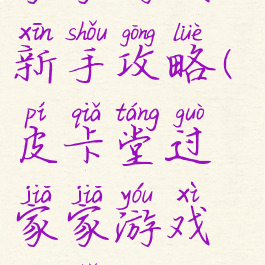 xīn shǒu gōng lüè
新手攻略(
pí qiǎ táng guò
皮卡堂过
jiā jiā yóu xì
家家游戏